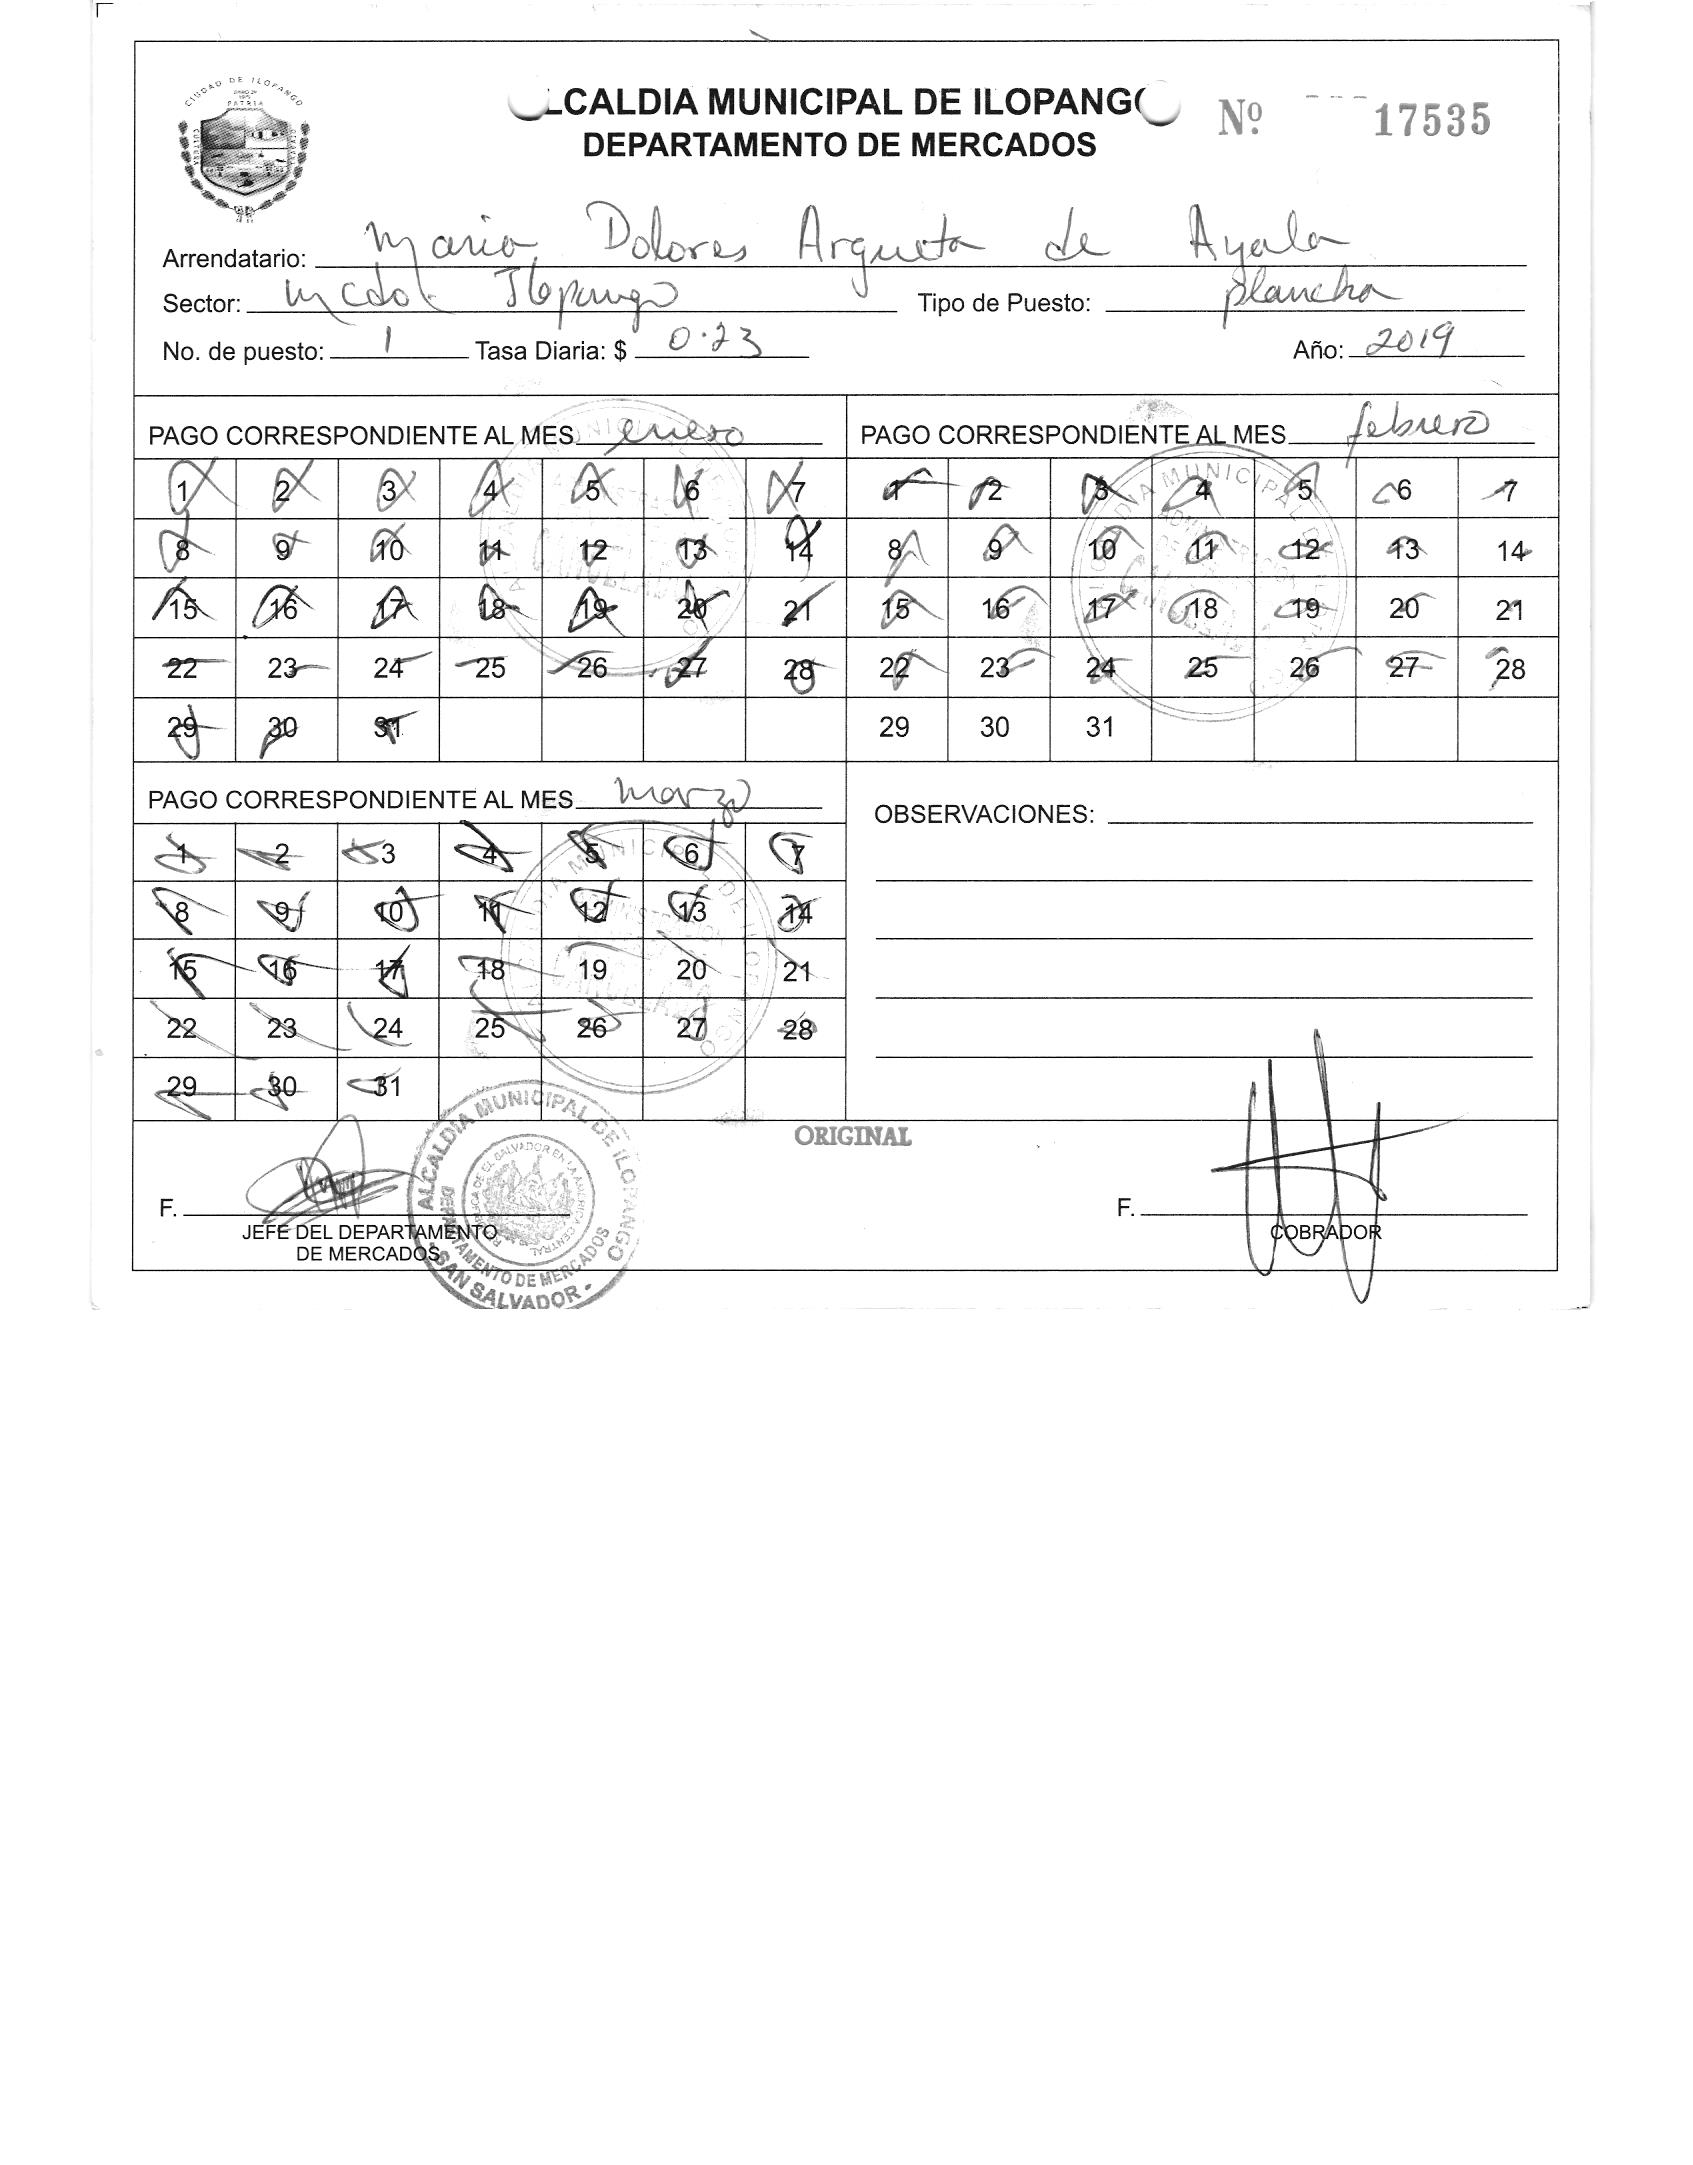 CIUDAD DE ILOPANGO
PATRIA
CULTURA
LCALDIA MUNICIPAL DE ILOPANG
DEPARTAMENTO DE MERCADOS
Nº 17535
Arrendatario: Maria Dolores Argueta de Ayala
Sector: Mcdo. Ilopango Tipo de Puesto: plancha
No. de puesto: 1 Tasa Diaria: $ 0.23 Año: 2019
PAGO CORRESPONDIENTE AL MES enero
1 2 3 4 5 6 7
8 9 10 11 12 13 14
15 16 17 18 19 20 21
22 23 24 25 26 27 28
29 30 31
PAGO CORRESPONDIENTE AL MES febrero
1 2 3 4 5 6 7
8 9 10 11 12 13 14
15 16 17 18 19 20 21
22 23 24 25 26 27 28
29 30 31
PAGO CORRESPONDIENTE AL MES marzo
1 2 3 4 5 6 7
8 9 10 11 12 13 14
15 16 17 18 19 20 21
22 23 24 25 26 27 28
29 30 31
OBSERVACIONES:
ORIGINAL
F.
JEFE DEL DEPARTAMENTO
DE MERCADOS
ALCALDIA MUNICIPAL DE ILOPANGO
REPUBLICA DE EL SALVADOR EN LA AMERICA CENTRAL
DEPARTAMENTO DE MERCADOS
- SAN SALVADOR -
F.
COBRADOR